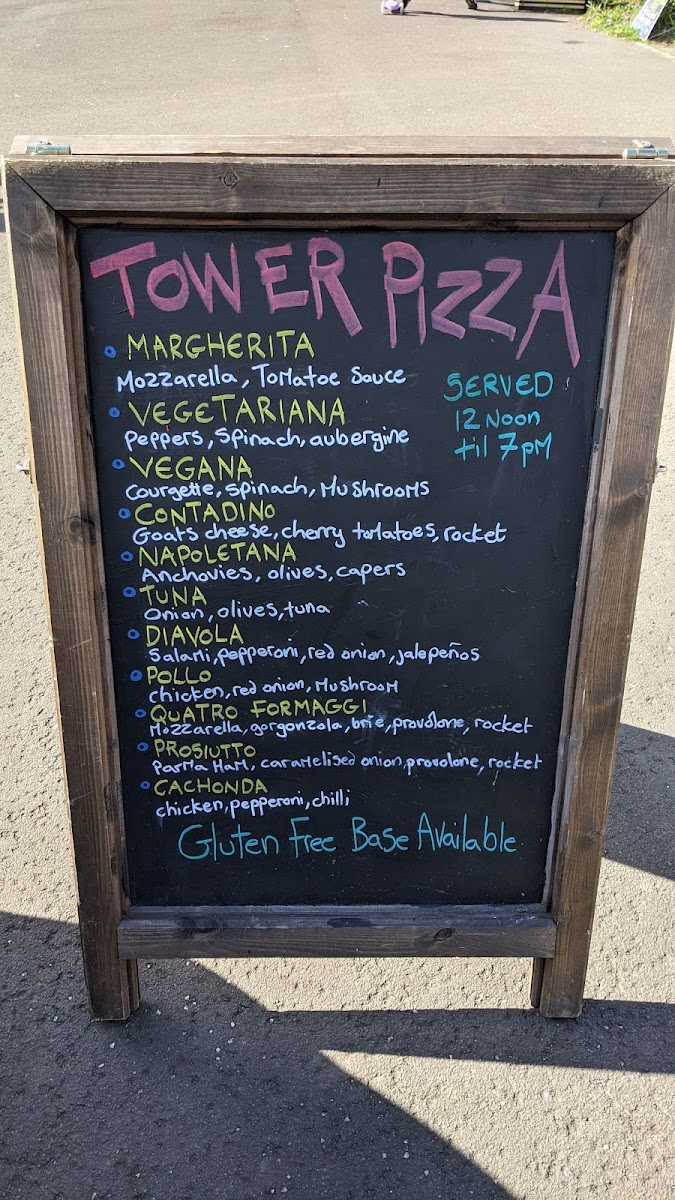 TOWER PIZZA
MARGHERITA
Mozzarella, Tomatoe Sauce
SERVED
12 Noon
til 7pM
VEGETARIANA
Peppers, Spinach, aubergine
VEGANA
Courgette, spinach, Mushrooms
CONTADINO
Goats cheese, cherry tomatoes, rocket
NAPOLETANA
Anchovies, olives, capers
TUNA
Onion, olives, tuna
DIAVOLA
Salami, pepperoni, red onion, jalepeños
POLLO
chicken, red onion, Mushroom
QUATRO FORMAGGI
Mozzarella, gorgonzola, brie, provolone, rocket
PROSIUTTO
Parma Ham, caramelised onion, provolone, rocket
CACHONDA
chicken, pepperoni, chilli
Gluten Free Base Available